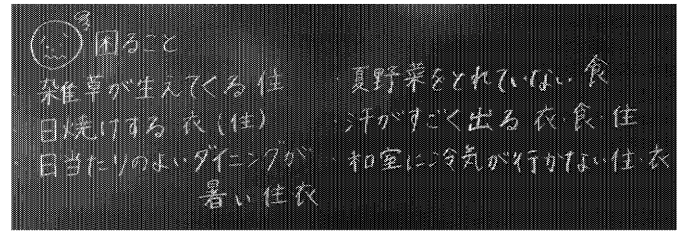 困ること
雑草が生えてくる 住
・日焼けする 衣(住)
・日当たりのよいダイニングが
暑い 住衣
・夏野菜をとれていない 食
・汗がすごく出る 衣・食・住
・和室に冷気が行かない 住・衣